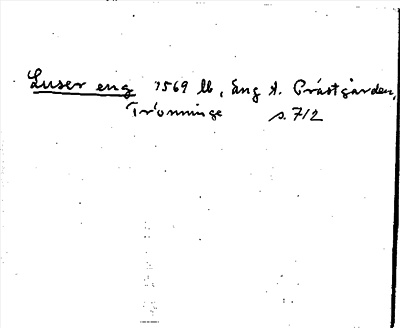 Luser eng 1569 lb, äng t. Prästgården,
Trönninge s. 712